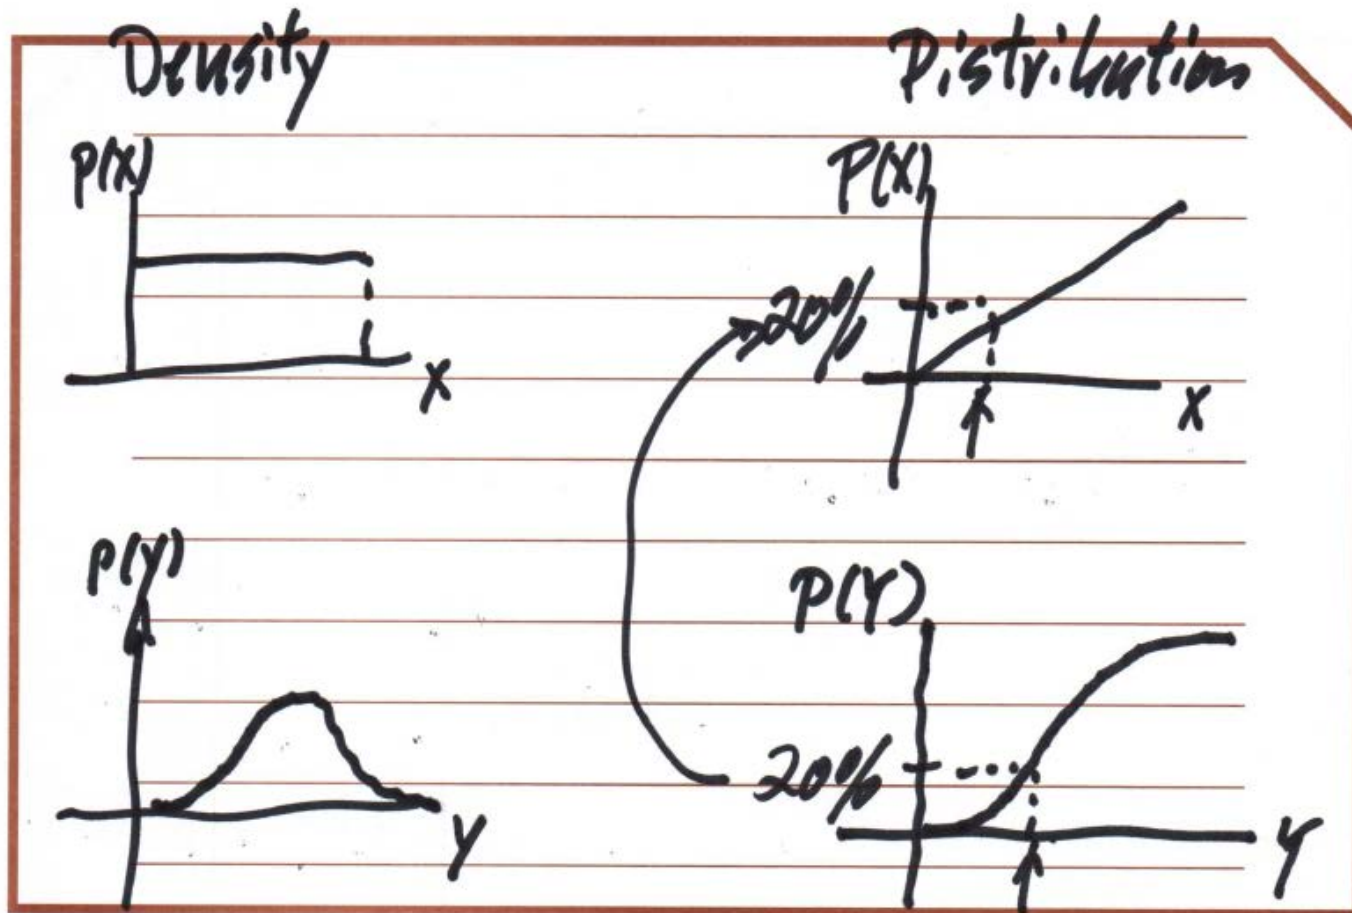 Density
Distribution
p(x)
x
P(x)
20%
x
p(y)
y
P(Y)
20%
y